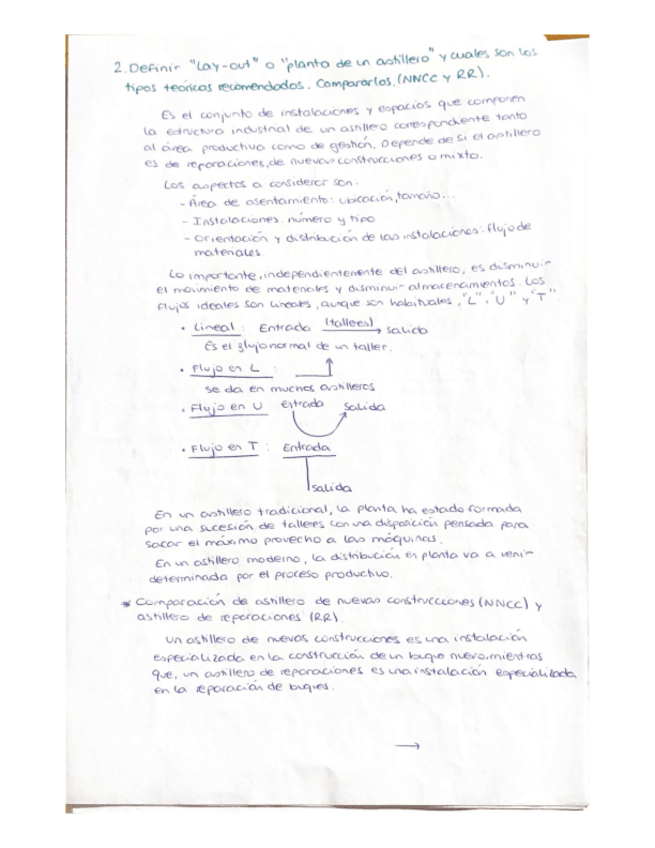 2. Definir "Lay-out" o "planta de un astillero" y cuales son los
tipos teóricos recomendados. Compararlos. (NNCC y RR).
Es el conjunto de instalaciones y espacios que componen
la estructura industrial de un astillero correspondiente tanto
al área productiva como de gestión. Depende de si el astillero
es de reparaciones, de nuevas construcciones o mixto.
Los aspectos a considerar son:
- Área de asentamiento: ubicación, tamaño...
- Instalaciones: número y tipo
- Orientación y distribución de las instalaciones: flujo de
materiales.
Lo importante, independientemente del astillero, es disminuir
el movimiento de materiales y disminuir almacenamientos. Los
flujos ideales son lineales, aunque son habituales, "L", "U" y "T"
• Lineal: Entrada (talleres) salida
Es el flujo normal de un taller.
• Flujo en L:
se da en muchos astilleros
• Flujo en U entrada salida
• Flujo en T: Entrada
salida
En un astillero tradicional, la planta ha estado formada
por una sucesión de talleres con una disposición pensada para
sacar el máximo provecho a las máquinas.
En un astillero moderno, la distribución en planta va a venir
determinada por el proceso productivo.
* Comparación de astillero de nuevas construcciones (NNCC) y
astillero de reparaciones (RR).
Un astillero de nuevas construcciones es una instalación
especializada en la construcción de un buque nuevo, mientras
que, un astillero de reparaciones es una instalación especializada
en la reparación de buques.